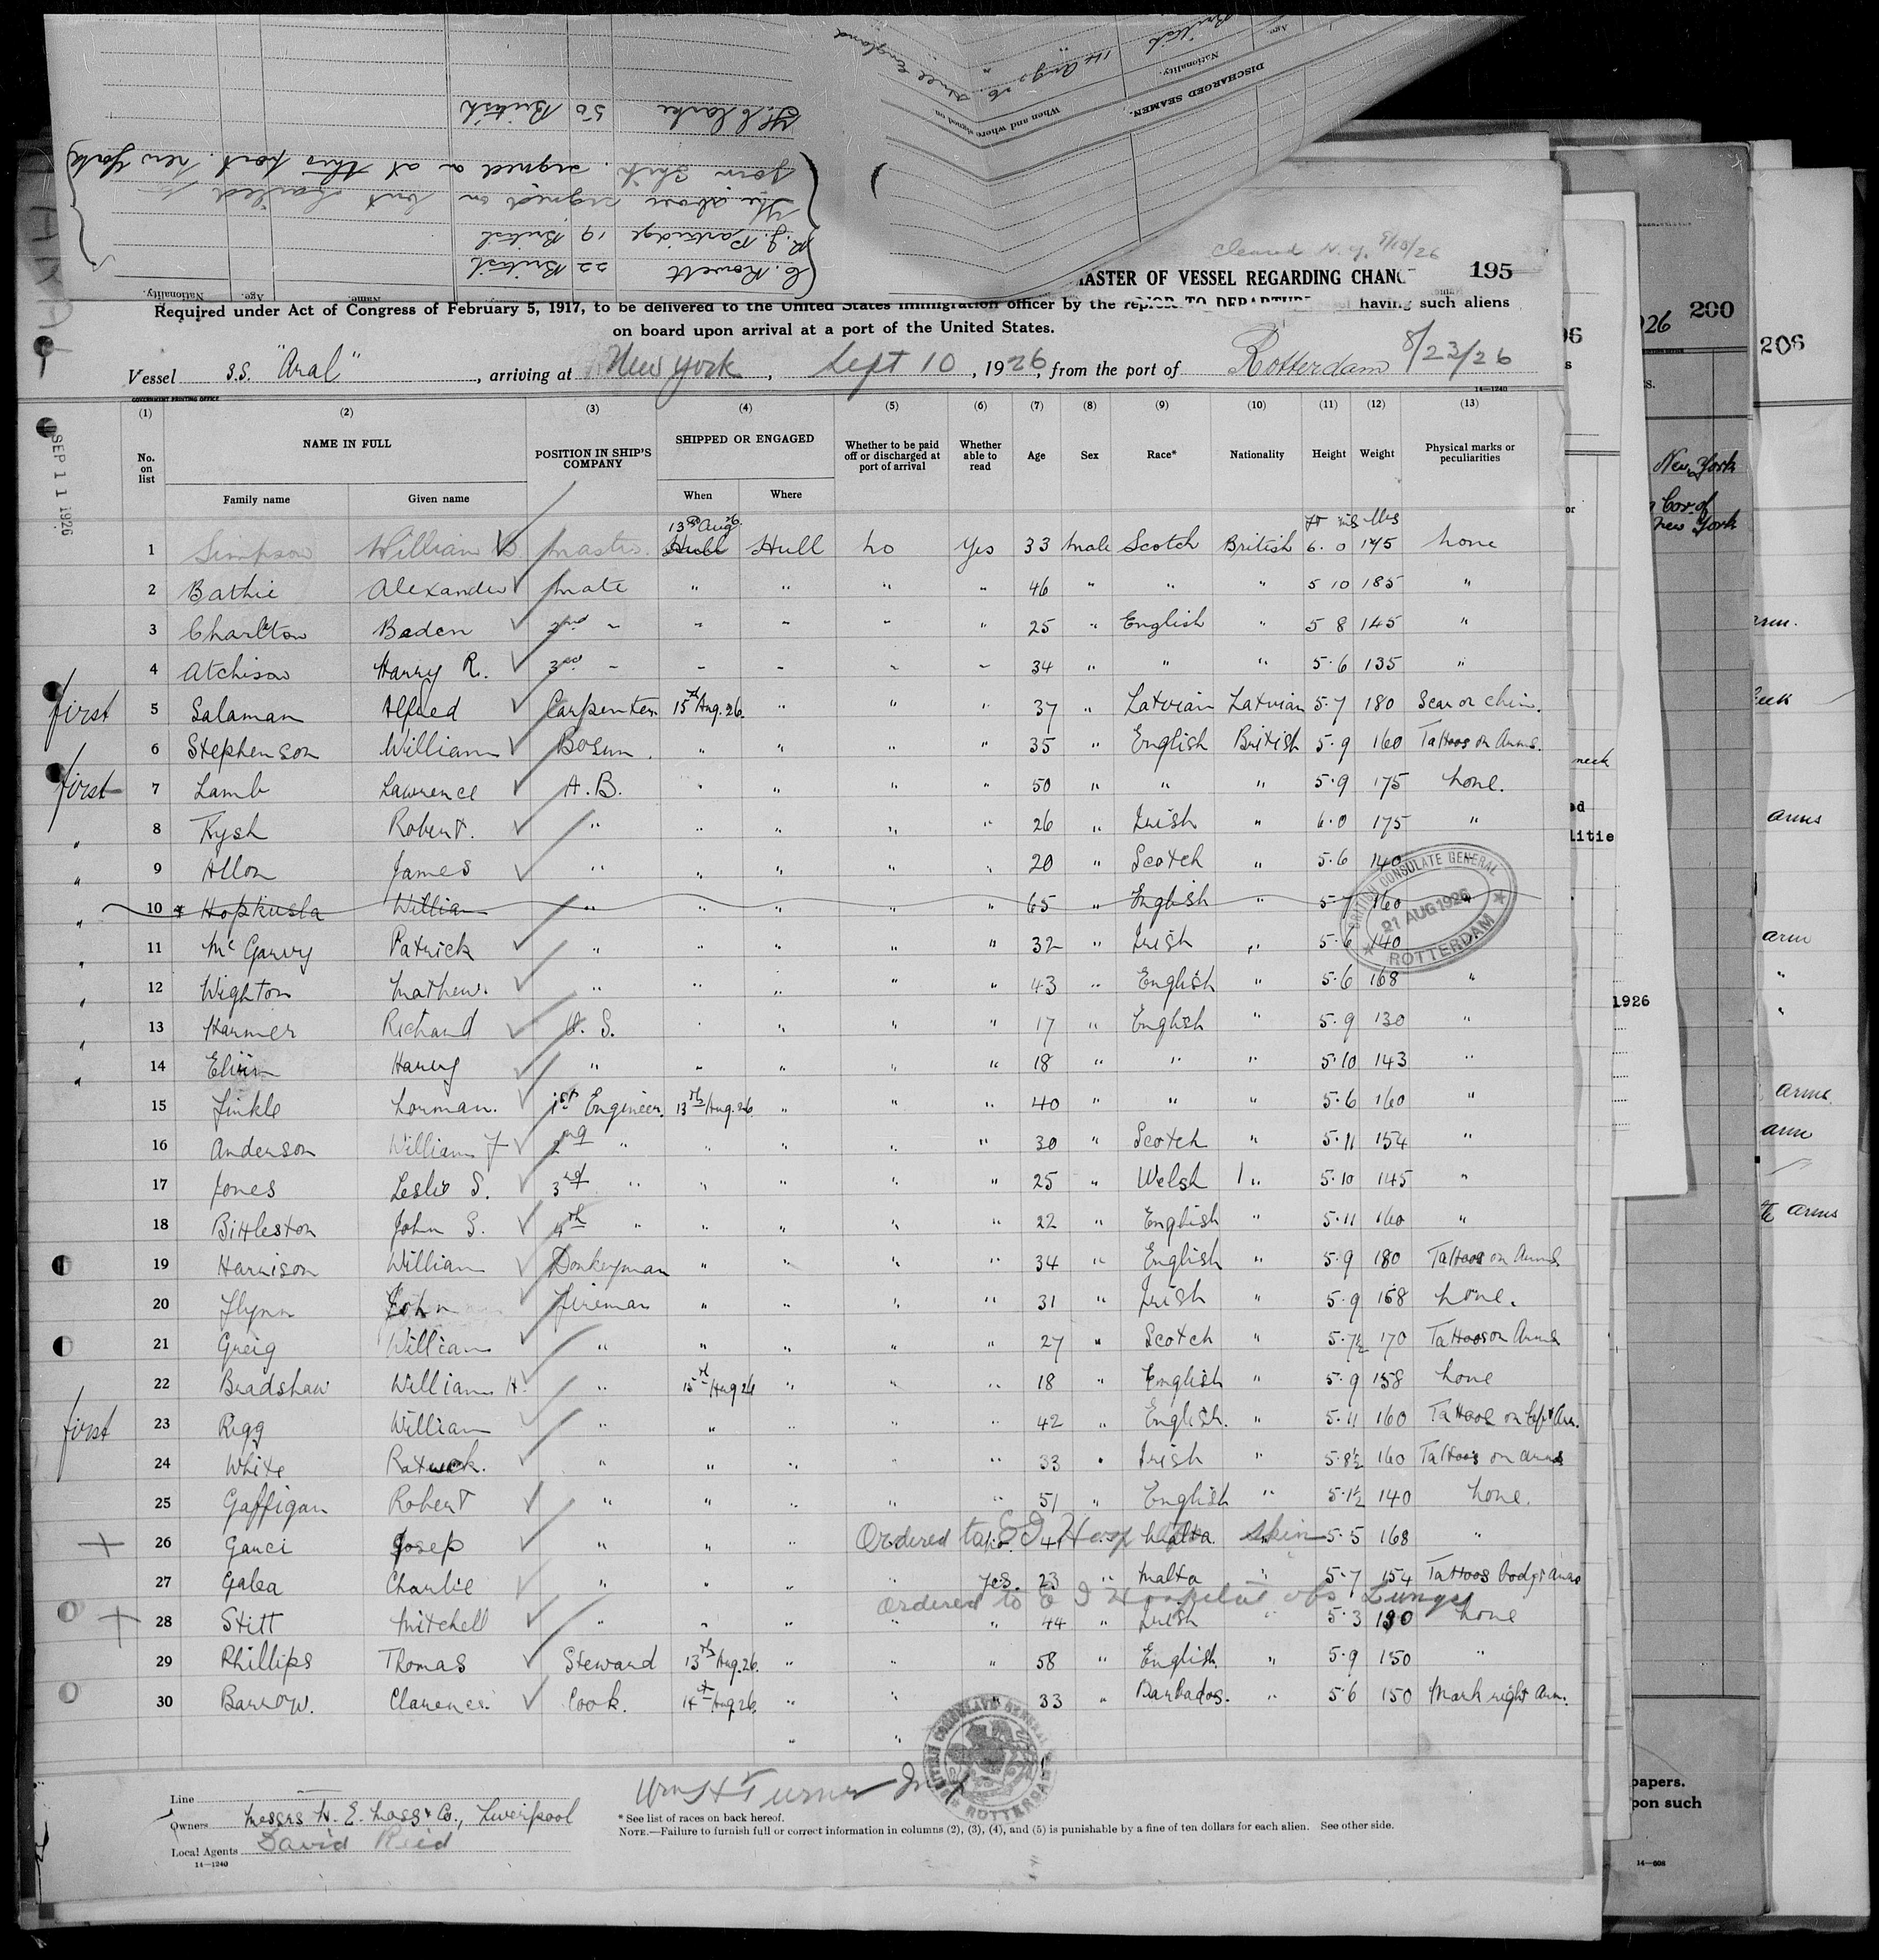 H. Clarke 50 British
join ship. signed on at this port. New York
The above signed on but failed to
R. J. Partridge 19 British
C. Rowett 22 British
DISCHARGED SEAMEN.
When and where signed on
Nationality.
Age.
Cleared N. Y. 9/15/26
MASTER OF VESSEL REGARDING CHANG 195
Required under Act of Congress of February 5, 1917, to be delivered to the United States immigration officer by the having such aliens
on board upon arrival at a port of the United States.
Vessel S.S. "Aral", arriving at New York, Sept 10, 1926, from the port of Rotterdam 8/23/26
GOVERNMENT PRINTING OFFICE 14—1240
(1) (2) (3) (4) (5) (6) (7) (8) (9) (10) (11) (12) (13)
No. on list NAME IN FULL POSITION IN SHIP'S COMPANY SHIPPED OR ENGAGED Whether to be paid off or discharged at port of arrival Whether able to read Age Sex Race* Nationality Height Weight Physical marks or peculiarities
Family name Given name When Where
SEP 11 1926
13th Aug 26 ft ins lbs
1 Simpson William Master Hull Hull no yes 33 male Scotch British 6.0 175 none
2 Bathie Alexander Mate " " " " 46 " " " 5 10 185 "
3 Charlton Baden 2nd " " " " " 25 " English " 5 8 145 "
4 Atchison Harry R. 3rd " " " " " 34 " " " 5.6 135 "
first 5 Salaman Alfred Carpenter 15th Aug. 26. " " " 37 " Latvian Latvian 5.7 180 Scar on chin.
6 Stephenson William Bosun. " " " " 35 " English British 5.9 160 Tattoos on Arms.
first 7 Lamb Lawrence A.B. " " " " 50 " " " 5.9 175 none.
" 8 Kysh Robert. " " " " " 26 " Irish " 6.0 175 "
" 9 Allon James " " " " " 20 " Scotch " 5.6 140 "
" 10 William " " " " " 65 " English " 5.7 160 "
" 11 McGarvy Patrick " " " " " 32 " Irish " 5.6 140 "
" 12 Wighton Mathew. " " " " " 43 " English " 5.6 168 "
" 13 Harmer Richard O.S. " " " " 17 " English " 5.9 130 "
" 14 Harry " " " " " 18 " " " 5.10 143 "
15 Finkle Lorman. 1st Engineer. 13th Aug. 26 " " " 40 " " " 5.6 160 "
16 Anderson William F 2nd " " " " " 30 " Scotch " 5.11 154 "
17 Jones Leslie S. 3rd " " " " " 25 " Welsh " 5.10 145 "
18 Bittleston John S. 4th " " " " " 22 " English " 5.11 160 "
19 Harrison William Donkeyman " " " " 34 " English " 5.9 180 Tattoos on Arms
20 Flynn John Fireman " " " " 31 " Irish " 5.9 158 none.
21 Greig William " " " " " 27 " Scotch " 5.7½ 170 Tattoos on Arms
22 Bradshaw William H. " 15th Aug 26 " " " 18 " English " 5.9 158 none
first 23 Rigg William " " " " " 42 " English. " 5.11 160 Tattoos on left Arm.
24 White Patrick. " " " " " 33 " Irish " 5.8½ 160 Tattoos on arms
25 Gaffigan Robert " " " " " 51 " English " 5.1½ 140 none.
26 Gauci Josep " " " Ordered to E I Hosp Malta. skin 5.5 168 "
27 Galea Charlie " " " " yes. 23 " Malta 5.7 154 Tattoos body & Arms
Ordered to E I Hospital obs Lungs
28 Stitt Mitchell " " " " " 44 " Irish " 5.3 130 none
29 Phillips Thomas Steward 13th Aug. 26. " " " 58 " English. " 5.9 150 "
30 Barrow. Clarence. Cook. 14th Aug 26. " " " 33 " Barbados. " 5.6 150 Mark right Arm.
BRITISH CONSULATE GENERAL
21 AUG 1926
ROTTERDAM
BRITISH CONSULATE GENERAL ROTTERDAM
Wm H Turner
Line
Owners Messrs H. E. Moss & Co., Liverpool
Local Agents David Reid
14—1240
* See list of races on back hereof.
NOTE.—Failure to furnish full or correct information in columns (2), (3), (4), and (5) is punishable by a fine of ten dollars for each alien. See other side.
200
206
New York
Cor. of
New York
neck
arms
arm
1926
arms.
arm
arms
papers.
pon such
14—608